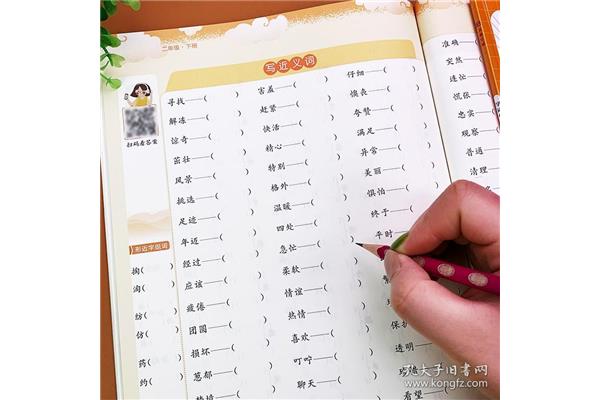 二年级·下册
写近义词
扫码看答案
寻找——( )
解冻——( )
惊奇——( )
茁壮——( )
风景——( )
挑选——( )
足迹——( )
年迈——( )
经过——( )
应该——( )
疲倦——( )
团圆——( )
损坏——( )
葱郁——( )
害羞——( )
赶紧——( )
快活——( )
精心——( )
特别——( )
格外——( )
温暖——( )
四处——( )
急忙——( )
柔软——( )
情谊——( )
热情——( )
喜欢——( )
叮咛——( )
聊天——( )
仔细——( )
懊丧——( )
夸赞——( )
满足——( )
异常——( )
美丽——( )
惧怕——( )
终于——( )
平时——(
保护
透明——(
看望——(
准确——
突然——
连忙——
慌张——
忠实——
观察——
普通——
清理——
形近字组词
掏(
淘(
纺(
仿(
药(
约(
孔夫子旧书网
www.kongfz.com